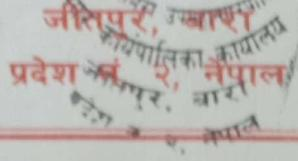 जीतपुर, बारा
कार्यपालिका कार्यालय
प्रदेश नं २, नेपाल
जीतपुर, बारा
प्रदेश नं २, नेपाल